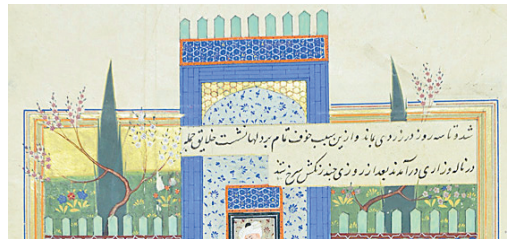 شد و تا سه روز در زردی بماند و ازین سبب خوف تمام بر دلها نشست خلایق جمله
در ناله و زاری درآمدند بعد از روزی چند رنگش سرخ شد